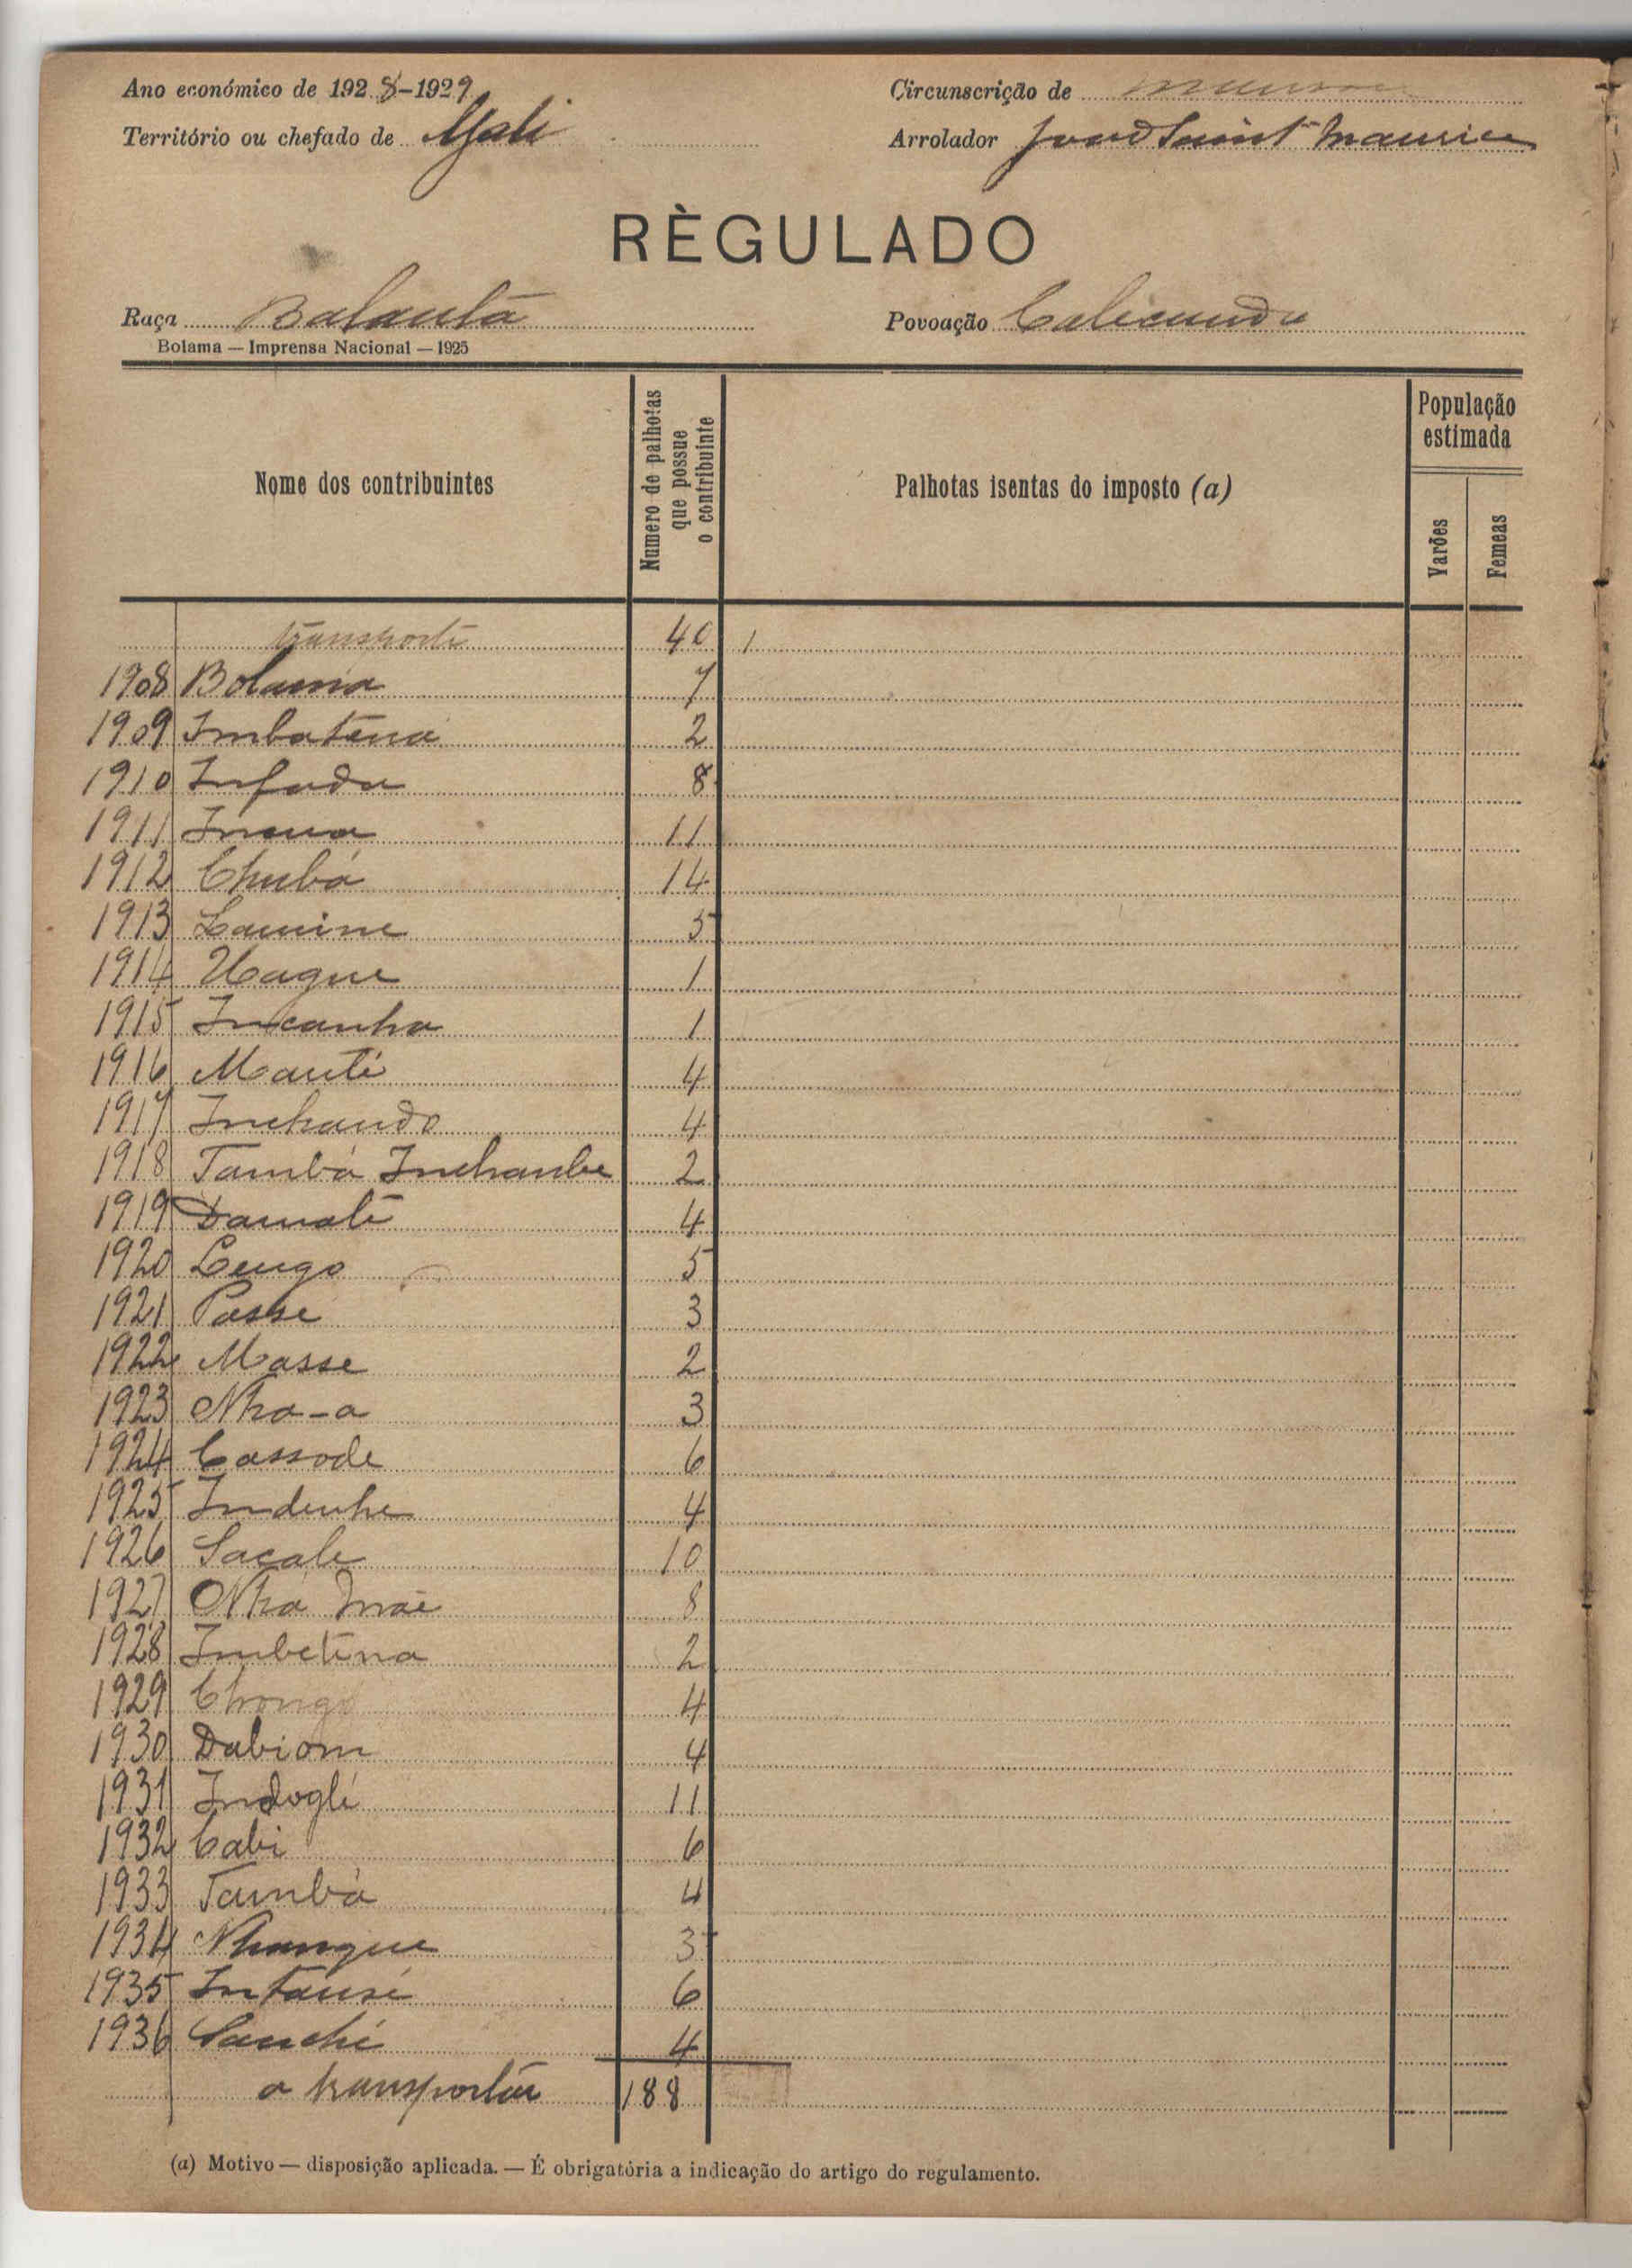 Ano económico de 1928-1929 Circunscrição de
Território ou chefado de Arrolador Saint Maurice
RÈGULADO
Raça Balanta Povoação Calicunda
Bolama — Imprensa Nacional — 1925
Nome dos contribuintes
Numero de palhotas
que possue
o contribuinte
Palhotas isentas do imposto (a)
População
estimada
Varões
Femeas
transporte 40 1
1908 Bolama 7
1909 Imbatená 2
1910 Infada 8
1911 11
1912 Chubá 14
1913 Lamine 5
1914 Uague 1
1915 Incanha 1
1916 Manti 4
1917 Inchando 4
1918 Tambá Inchanbe 2
1919 Damatí 4
1920 Lengo 5
1921 Passe 3
1922 Masse 2
1923 Nha-a 3
1924 Cassode 6
1925 Indenhe 4
1926 Sacale 10
1927 Nha Inae 8
1928 Imbetina 2
1929 Chongo 4
1930 Dabiom 4
1931 Indoglé 11
1932 Cabi 6
1933 Tambá 4
1934 Nhangue 3
1935 Intansé 6
1936 Sanchi 4
a transportar 188
(a) Motivo — disposição aplicada. — É obrigatória a indicação do artigo do regulamento.